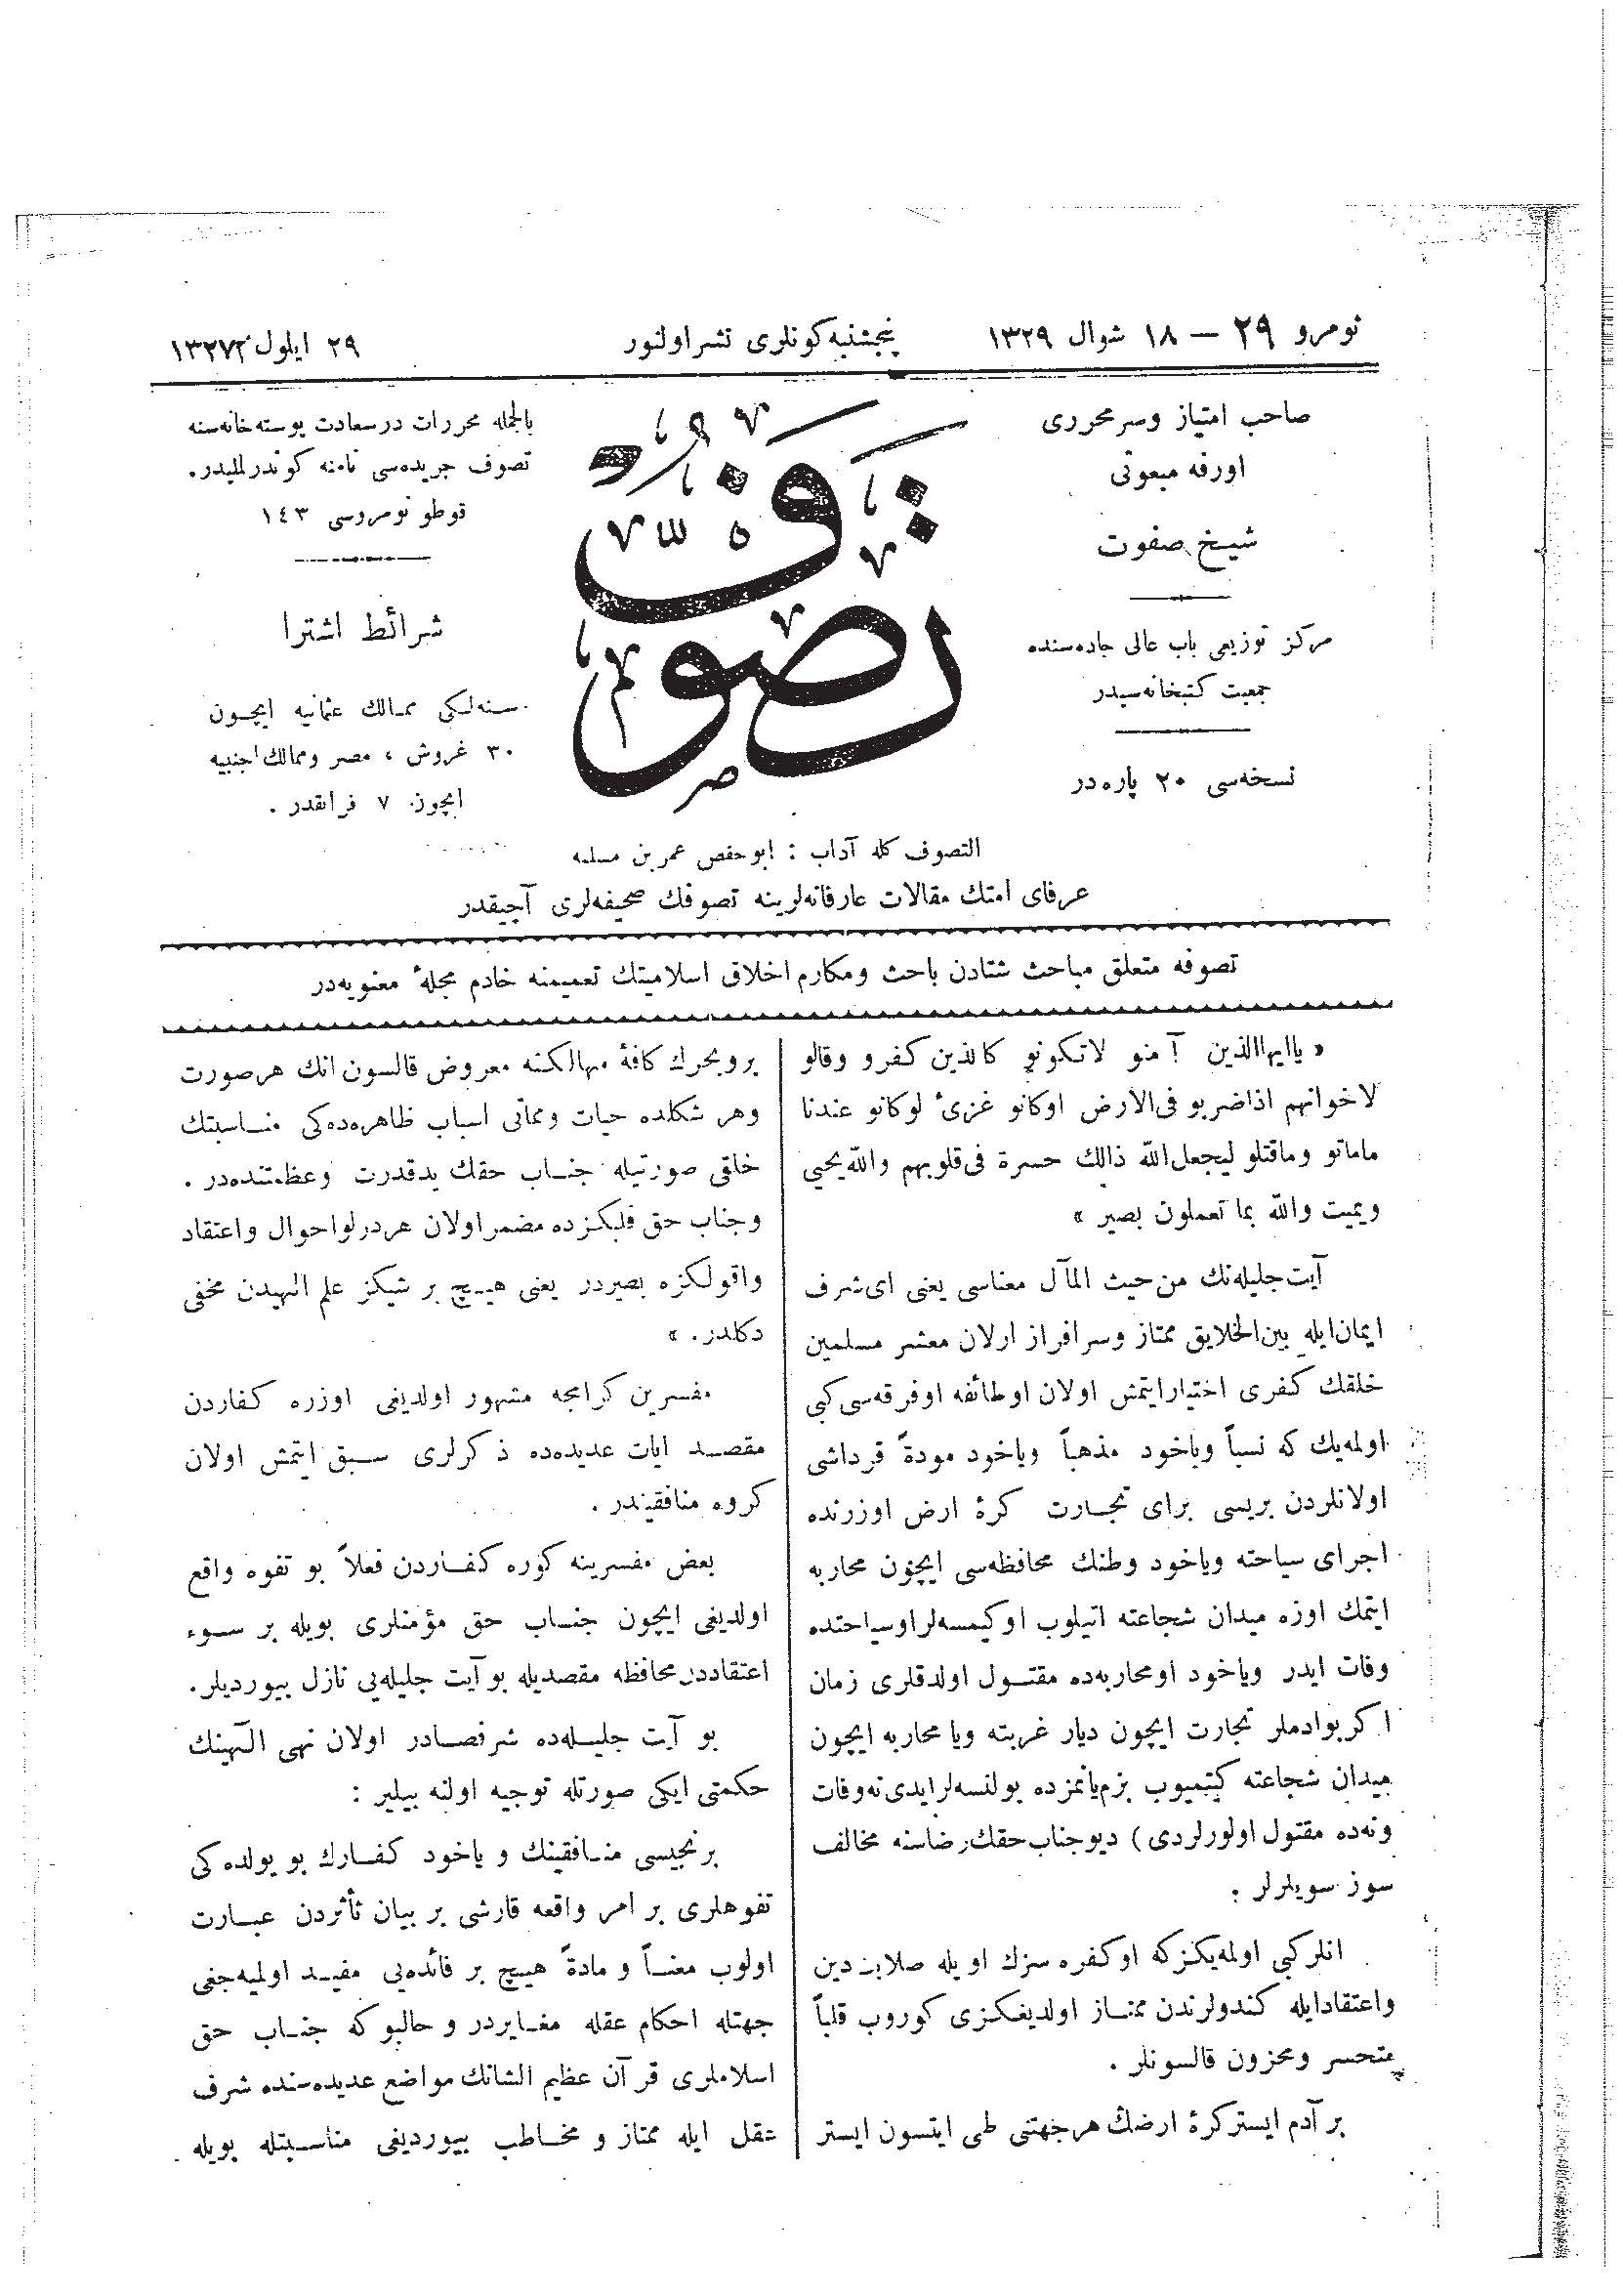 نومرو ٢٩ — ١٨ شوال ١٣٢٩
پنجشنبه كونلرى نشر اولنور
٢٩ ايلول ١٣٢٧
صاحب امتياز وسرمحررى
اورفه مبعوثى
شيخ صفوت
مركز توزيعى باب عالى جاده‌سنده
جمعيت كتبخانه‌سيدر
نسخه‌سى ٢٠ پاره‌در
تصوف
بالجمله محررات درسعادت پوسته‌خانه‌سنه
تصوف جريده‌سى نامنه كوندرلمليدر.
قوطو نومروسى ١٤٣
شرائط اشترا
سنه‌لكى ممالك عثمانيه ايچون
٣٠ غروش ، مصر وممالك اجنبيه
ايچون ٧ فرانقدر .
التصوف كله آداب : ابوحفص عمر بن مسلمه
عرفاى امتك مقالات عارفانه‌لرينه تصوفك صحيفه‌لرى آچيقدر
تصوفه متعلق مباحث شتادن باحث ومكارم اخلاق اسلاميتك تعميمنه خادم مجلهٔ معنويه‌در
« ياايهاالذين آمنو لاتكونو كالذين كفرو وقالو
لاخوانهم اذاضربو فى‌الارض اوكانو غزىً لوكانو عندنا
ماماتو وماقتلو ليجعل‌الله ذالك حسرة فى‌قلوبهم والله يحيي
ويميت والله بما تعملون بصير »
آيت جليله‌نك من حيث المآل معناسى يعنى اى‌شرف
ايمان‌ايله بين‌الخلايق ممتاز وسرافراز اولان معشر مسلمين
خلقك كفرى اختيارايتمش اولان اوطائفه اوفرقه‌سى كبى
اولمه‌يك كه نسباً وياخود مذهباً وياخود مودةً قرداشى
اولانلردن بريسى براى تجارت كرهٔ ارض اوزرنده
اجراى سياحته وياخود وطنك محافظه‌سى ايچون محاربه
ايتمك اوزه ميدان شجاعته اتيلوب اوكيمسه‌لراوسياحتده
وفات ايدر وياخود اومحاربه‌ده مقتول اولدقلرى زمان
اكربوادملر تجارت ايچون ديار غربته ويا محاربه ايچون
ميدان شجاعته كيتميوب بزم‌يانمزده بولنسه‌لرايدى نه‌وفات
ونه‌ده مقتول اولورلردى) ديوجناب‌حقك رضاسنه مخالف
سوز سويلرلر .
انلركبى اولمه‌يكزكه اوكفره سزك اويله صلابت دين
واعتقادايله كندولرندن ممتاز اولديغكزى كوروب قلباً
متحسر ومحزون قالسونلر .
بر آدم ايستر كرهٔ ارضك هرجهتنى طى ايتسون ايستر
بروبحرك كافهٔ مهالكنه معروض قالسون انك هرصورت
وهر شكلده حيات ومماتى اسباب ظاهره‌ده‌كى مناسبتك
خلقى صورتيله جناب حقك يدقدرت وعظمتنده‌در .
وجناب حق قلبكزده مضمراولان هردرلواحوال واعتقاد
واقولكزه بصيردر يعنى هيچ بر شيكز علم الهيدن مخفى
دكلدر. »
مفسرين كرامجه مشهور اولديغى اوزره كفاردن
مقصد ايات عديده‌ده ذكرلرى سبق ايتمش اولان
كروه منافقيندر .
بعض مفسرينه كوره كفاردن فعلاً بو تفوه واقع
اولديغى ايچون جناب حق مؤمنلرى بويله بر سوء
اعتقاددن محافظه مقصديله بو آيت جليله‌يى نازل بيورديلر.
بو آيت جليله‌ده شرفصادر اولان نهى آلهينك
حكمتى ايكى صورتله توجيه اولنه بيلير :
برنجيسى منافقينك وياخود كفارك بو يولده‌كى
تفوهلرى بر امر واقعه قارشى بر بيان تأثردن عبارت
اولوب معناً و مادةً هيچ بر فائده‌يى مفيد اولميه‌جغى
جهتله احكام عقله مغايردر وحالبوكه جناب حق
اسلاملرى قرآن عظيم الشانك مواضع عديده‌سنده شرف
عقل ايله ممتاز و مخاطب بيورديغى مناسبتله بويله